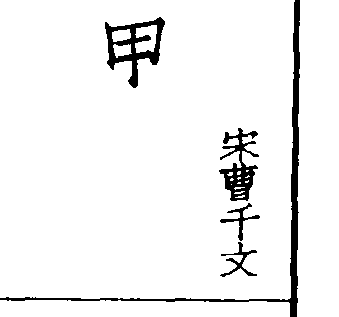 甲
宋曹千文